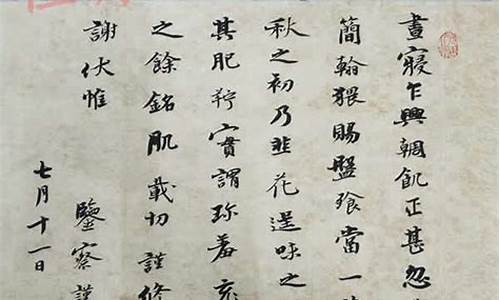 晝寢乍興輖飢正甚忽
簡翰猥賜盤飧當一
秋之初乃韭花逞味之
其肥羜實謂珍羞充
之餘銘肌載切謹修
謝伏惟
鑒察謹
七月十一日